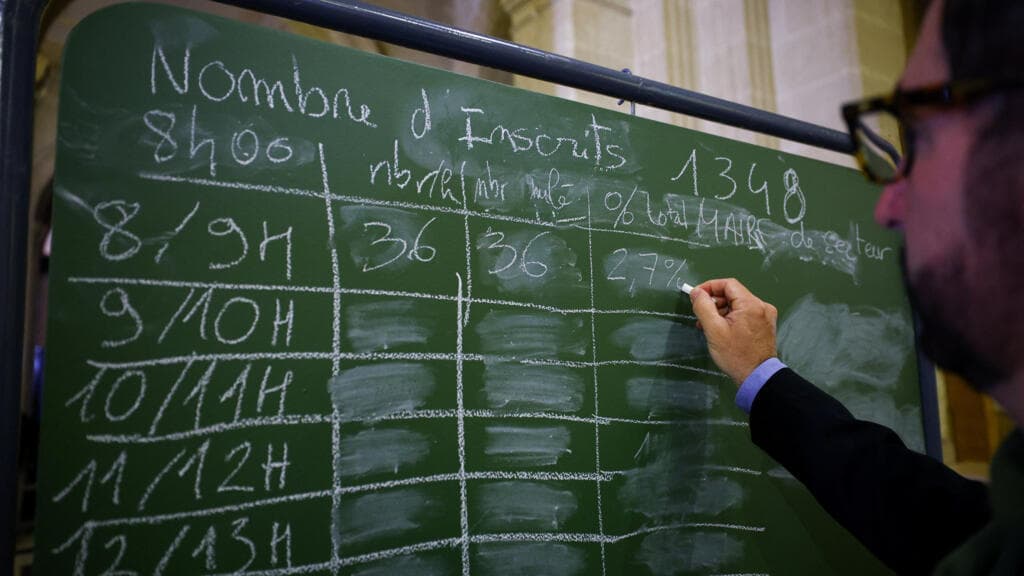 Nombre d'Inscrits 1348
8h00 nbr/h nbr % total MAIRE de secteur
8/9H 36 36 2,7%
9/10H
10/11H
11/12H
12/13H